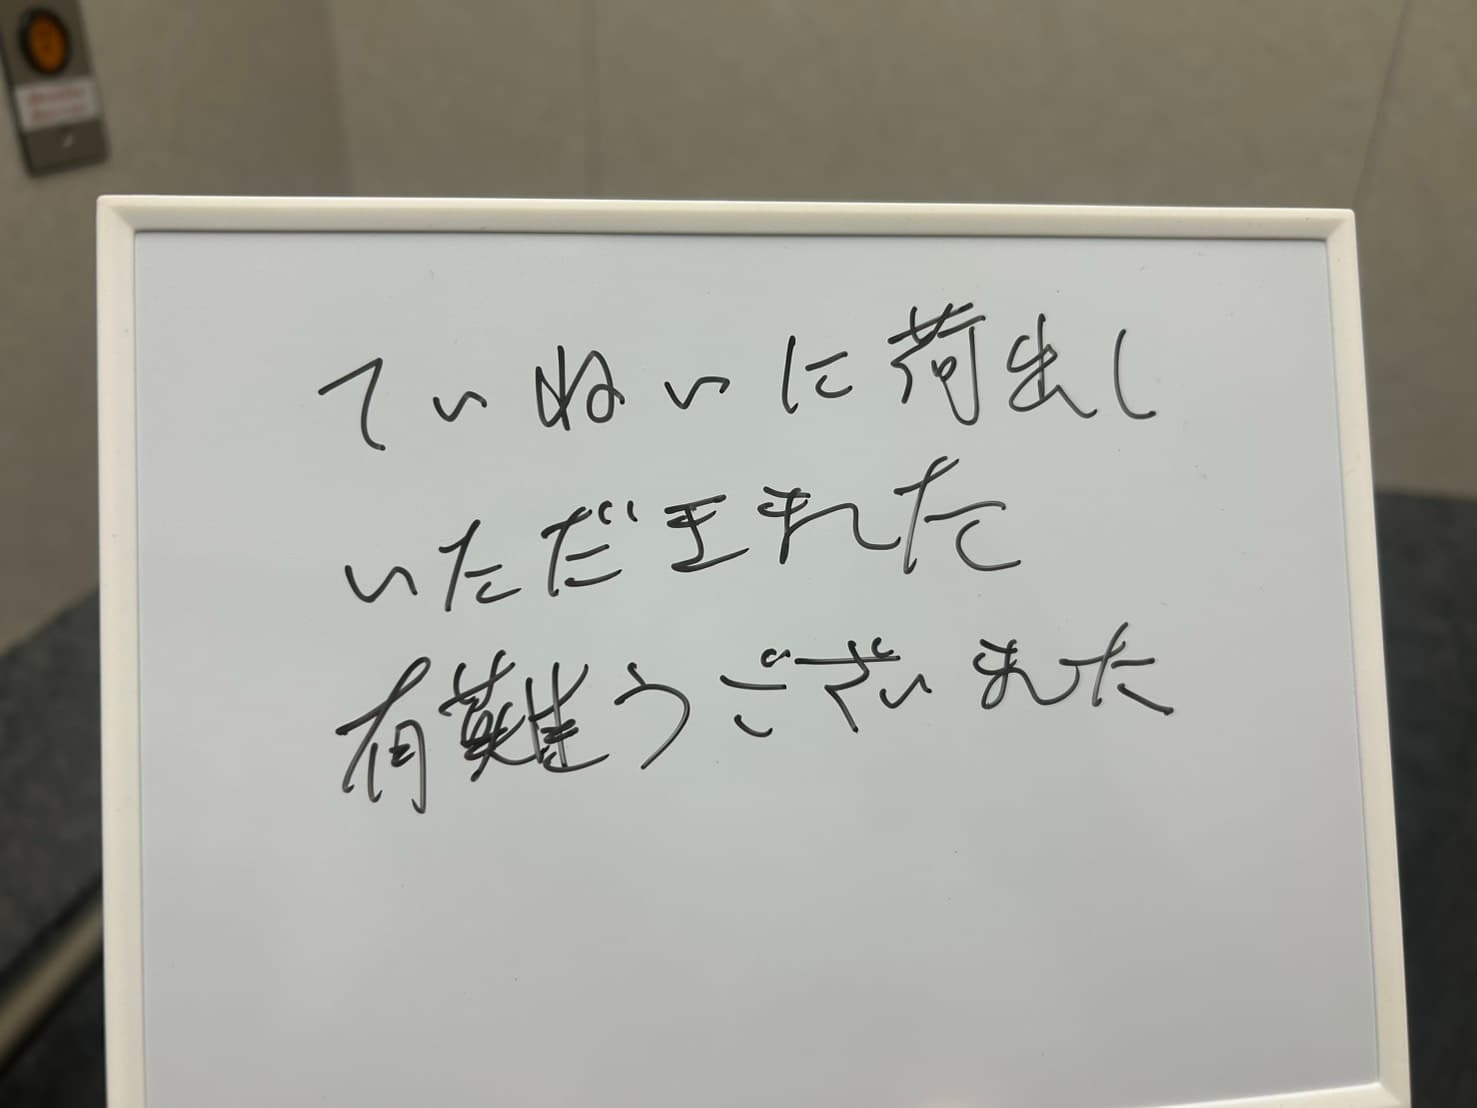 ていねいに荷出し
いただきました
有難うございました